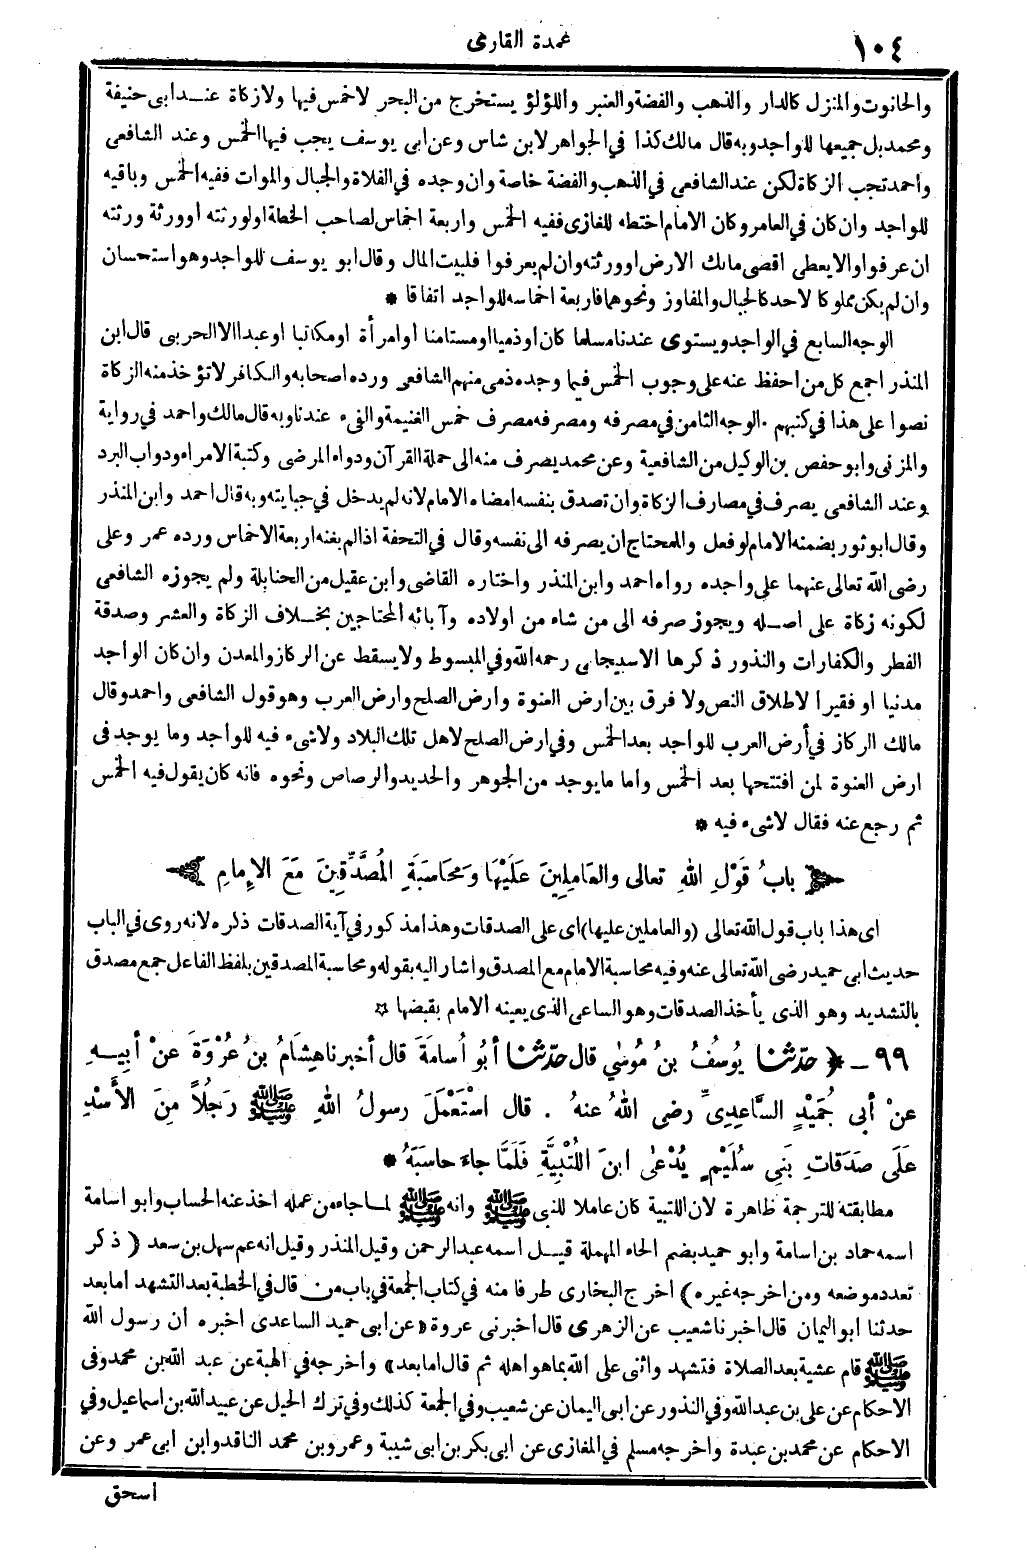 ١٠٤
عمدة القارى
والحانوت والمنزل كالدار والذهب والفضة والعنبر واللؤلؤ يستخرج من البحر لاخمس فيها ولازكاة عند ابى حنيفة
ومحمد بل جميعها للواجد وبه قال مالك كذا فى الجواهر لابن شاس وعن ابى يوسف يجب فيها الخمس وعند الشافعى
واحمد تجب الزكاة لكن عند الشافعى فى الذهب والفضة خاصة وان وجده فى الفلاة والجبال والموات ففيه الخمس وباقيه
للواجد وان كان فى العامر وكان الامام اختطه للغازى ففيه الخمس واربعة اخماس لصاحب الخطة اولورثته اوورثة ورثته
ان عرفوا والا يعطى اقصى مالك الارض اوورثته وان لم يعرفوا فلبيت المال وقال ابو يوسف للواجد وهو استحسان
وان لم يكن مملوكا لاحد كالجبال والمفاوز ونحوهما فاربعة اخماسه للواجد اتفاقا *
الوجه السابع فى الواجد ويستوى عندنا مسلما كان اوذميا اومستامنا اوامرأة اومكاتبا اوعبدا الا الحربى قال ابن
المنذر اجمع كل من احفظ عنه على وجوب الخمس فيما وجده ذمى منهم الشافعى ورده اصحابه والكافر لاتؤخذ منه الزكاة
نصوا على هذا فى كتبهم ٠ الوجه الثامن فى مصرفه ومصرفه مصرف خمس الغنيمة والفىء عندنا وبه قال مالك واحمد فى رواية
والمزنى وابو حفص بن الوكيل من الشافعية وعن محمد يصرف منه الى حملة القرآن ودواء المرضى وكتبة الامراء ودواب البرد
وعند الشافعى يصرف فى مصارف الزكاة وان تصدق بنفسه امضاه الامام لانه لم يدخل فى جبايته وبه قال احمد وابن المنذر
وقال ابو ثور يضمنه الامام لو فعل وللمحتاج ان يصرفه الى نفسه وقال فى التحفة اذالم يغنه اربعة الاخماس ورده عمر وعلى
رضى الله تعالى عنهما على واجده رواه احمد وابن المنذر واختاره القاضى وابن عقيل من الحنابلة ولم يجوزه الشافعى
لكونه زكاة على اصله ويجوز صرفه الى من شاء من اولاده وآبائه المحتاجين بخلاف الزكاة والعشر وصدقة
الفطر والكفارات والنذور ذكرها الاسبيجابى رحمه الله وفى المبسوط ولا يسقط عن الركاز والمعدن وان كان الواجد
مدنيا او فقيرا لاطلاق النص ولا فرق بين ارض العنوة وارض الصلح وارض العرب وهو قول الشافعى واحمد وقال
مالك الركاز فى أرض العرب للواجد بعد الخمس وفى ارض الصلح لاهل تلك البلاد ولاشىء فيه للواجد وما يوجد فى
ارض العنوة لمن افتتحها بعد الخمس واما ما يوجد من الجوهر والحديد والرصاص ونحوه فانه كان يقول فيه الخمس
ثم رجع عنه فقال لاشىء فيه *
باب قَوْلِ اللهِ تعالى والعَامِلِينَ عَلَيْهَا وَمُحَاسَبَةِ المُصَدِّقِينَ مَعَ الإِمامِ
اى هذا باب قول الله تعالى (والعاملين عليها) اى على الصدقات وهذا مذكور فى آية الصدقات ذكره لانه روى فى الباب
حديث ابى حميد رضى الله تعالى عنه وفيه محاسبة الامام مع المصدق واشار اليه بقوله ومحاسبة المصدقين بلفظ الفاعل جمع مصدق
بالتشديد وهو الذى يأخذ الصدقات وهو الساعى الذى يعينه الامام بقبضها ☆
٩٩ ـ ﴿ حدّثنا يُوسُفُ بنُ مُوسٰي قال حدّثنا أبُو أُسامَةَ قال أخبرنا هِشَامُ بنُ عُرْوَةَ عنْ أبِيهِ
عنْ أبى حُمَيْدٍ السَّاعِدِىِّ رضى اللهُ عنهُ . قال اسْتَعْمَلَ رسولُ اللهِ ﷺ رَجُلاً مِنَ الأَسْدِ
عَلَى صَدَقاتِ بَنِى سُلَيْمٍ يُدْعٰى ابنَ اللُّتْبِيَّةِ فَلَمَّا جاءَ حاسَبَهُ *
مطابقته للترجمة ظاهرة لان اللتبية كان عاملا للنبى ﷺ وانه ﷺ لما جاء من عمله اخذ عنه الحساب وابو اسامة
اسمه حماد بن اسامة وابو حميد بضم الحاء المهملة قيل اسمه عبد الرحمن وقيل المنذر وقيل انه عم سهل بن سعد (ذكر
تعدد موضعه ومن اخرجه غيره) اخرج البخارى طرفا منه فى كتاب الجمعة فى باب من قال فى الخطبة بعد التشهد اما بعد
حدثنا ابو اليمان قال اخبرنا شعيب عن الزهرى قال اخبرنى عروة «عن ابى حميد الساعدى اخبره ان رسول الله
ﷺ قام عشية بعد الصلاة فتشهد واثنى على الله بما هو اهله ثم قال اما بعد» واخرجه فى الهبة عن عبد الله بن محمد وفى
الاحكام عن على بن عبد الله وفى النذور عن ابى اليمان عن شعيب وفى الجمعة كذلك وفى ترك الحيل عن عبيد الله بن اسماعيل وفى
الاحكام عن محمد بن عبدة واخرجه مسلم فى المغازى عن ابى بكر بن ابى شيبة وعمرو بن محمد الناقد وابن ابى عمر وعن
اسحق